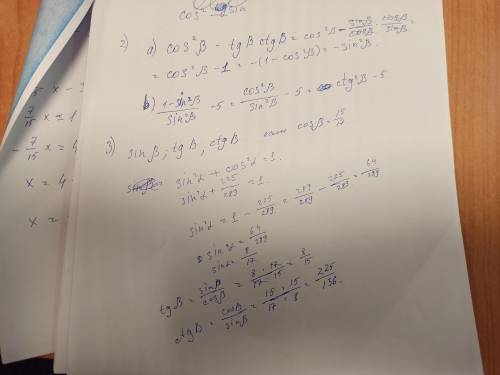 cos² sin
2) a) cos²β - tgβ ctgβ = cos²β - sinβ/cosβ · cosβ/sinβ =
= cos²β - 1 = -(1 - cos²β) = -sin²β.
b) 1-sin²β/sin²β - 5 = cos²β/sin²β - 5 = ctg²β - 5
3) sinβ, tgβ, ctgβ если cosβ = 15/17
sin²α + cos²α = 1.
sin²α + 225/289 = 1
sin²α = 1 - 225/289 = 289/289 - 225/289 = 64/289
sin²α = 64/289
sinα = 8/17
tgβ = sinβ/cosβ = 8 · 17/17 · 15 = 8/15
ctgβ = cosβ/sinβ = 15 · 15/17 · 8 = 225/136.
5 x -
7/15 x = 1
- 7/15 x = 4
x = 4
x =